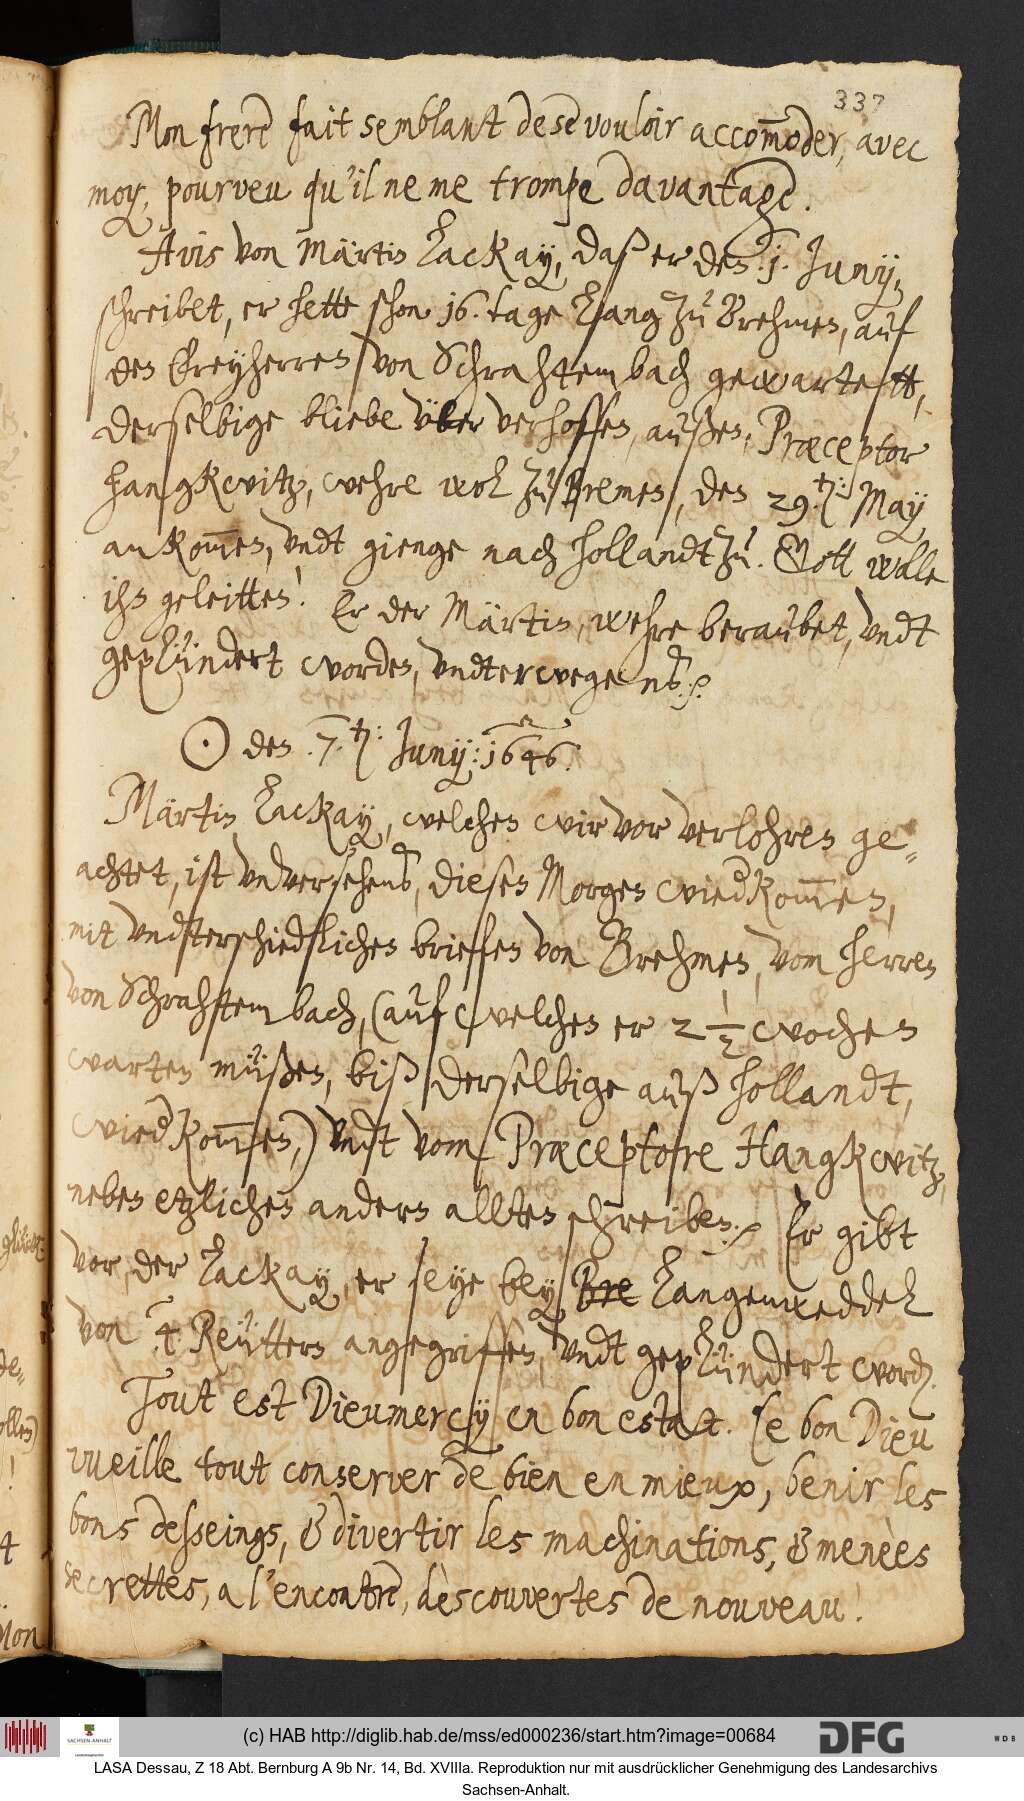 337
Mon frere fait semblant de se vouloir accom̅oder, avec
moy, pourveu qu'il ne me trompe davantage.
Avis von Märtin Zackay, daß er den .1. Junij,
schreibet, er hette schon 16. tage lang zu Brehmen, auf
den Freyherren von Schrahtembach gewartett,
derselbige bliebe über verhoffen, außen, Præceptor
Hangkwitz, wehre wol zu Bremen, den 29.ten: May
ankom̅en, vndt gienge nach Hollandt zu. Gott wolle
ihn geleitten! Er der Märtin, wehre beraubet, vndt
geplündert worden, vndterwegens.
☉ den .7.ten: Junij: 1646.
Märtin Zackay, welchen wir vor verlohren ge-
achtet, ist vnversehens, diesen Morgen wiedkom̅en,
mit vndterschiedlichen brieffen von Brehmen, vom Herren
von Schrahtembach, (auf welchen er 2 1/2 wochen
warten müßen, biß derselbige auß Hollandt,
wiedkom̅en,) vndt vom Præceptore Hangkwitz,
neben etzlichen andern allten schreiben. Er gibt
vor, der Zackay, er seye bey Bre Langenweddel
von .4. Reüttern angegriffen, vndt geplündert word.
Tout est Dieumercy en bon estat. Le bon Dieu
vueille tout conserver de bien en mieux, benir les
bons desseings, & divertir les machinations, & menèes
secrettes, a l'encontre, dèscouvertes de nouveau!
Mon
(c) HAB http://diglib.hab.de/mss/ed000236/start.htm?image=00684
SACHSEN-ANHALT
DFG
WDB
LASA Dessau, Z 18 Abt. Bernburg A 9b Nr. 14, Bd. XVIIIa. Reproduktion nur mit ausdrücklicher Genehmigung des Landesarchivs
Sachsen-Anhalt.